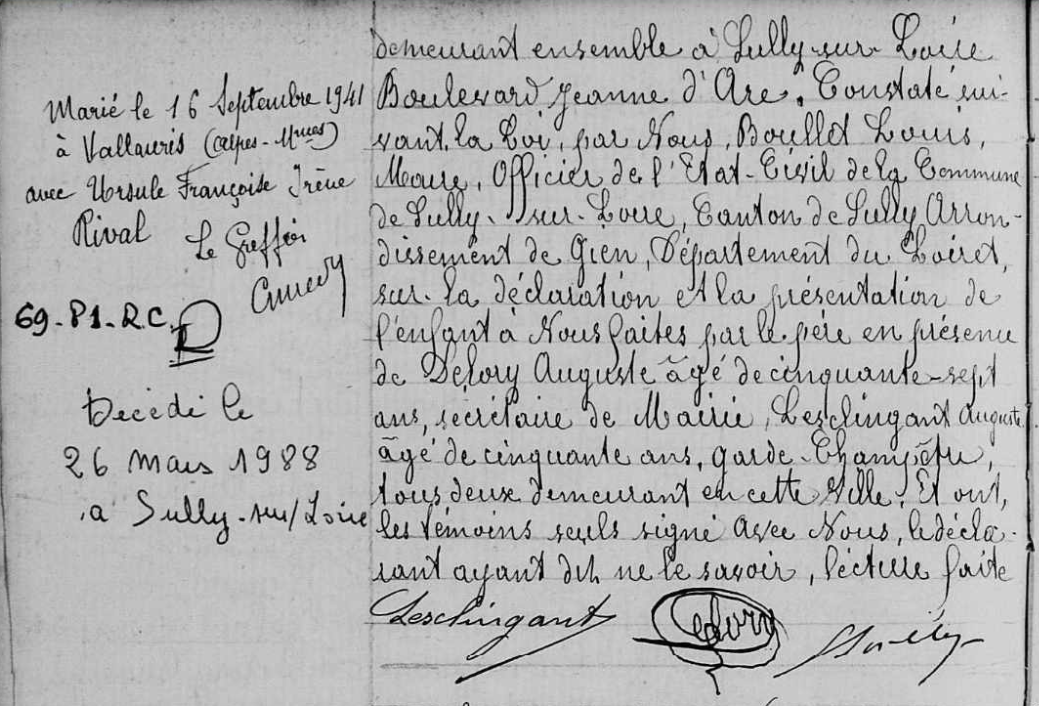 Marié le 16 Septembre 1941
à Vallauris (Alpes-Mmes)
avec Ursule Françoise Irène
Rival
Le Greffier
69-P1-R.C.
Décédé le
26 mars 1988
à Sully-sur/Loire
demeurant ensemble à Sully-sur-Loire
Boulevard Jeanne d'Arc. Constaté sui-
vant la Loi, par Nous, Boullet Louis,
Maire, Officier de l'Etat-Civil de la Commune
de Sully-sur-Loire, Canton de Sully Arron-
dissement de Gien, Département du Loiret,
sur la déclaration et la présentation de
l'enfant à Nous faites par le père en présence
de Delory Auguste âgé de cinquante-sept
ans, secrétaire de Mairie, Lesclingant Auguste
âgé de cinquante ans, garde-Champêtre,
tous deux demeurant en cette Ville. Et ont,
les témoins seuls signé avec Nous, le décla-
rant ayant dit ne le savoir, lecture faite
Lesclingant Delory